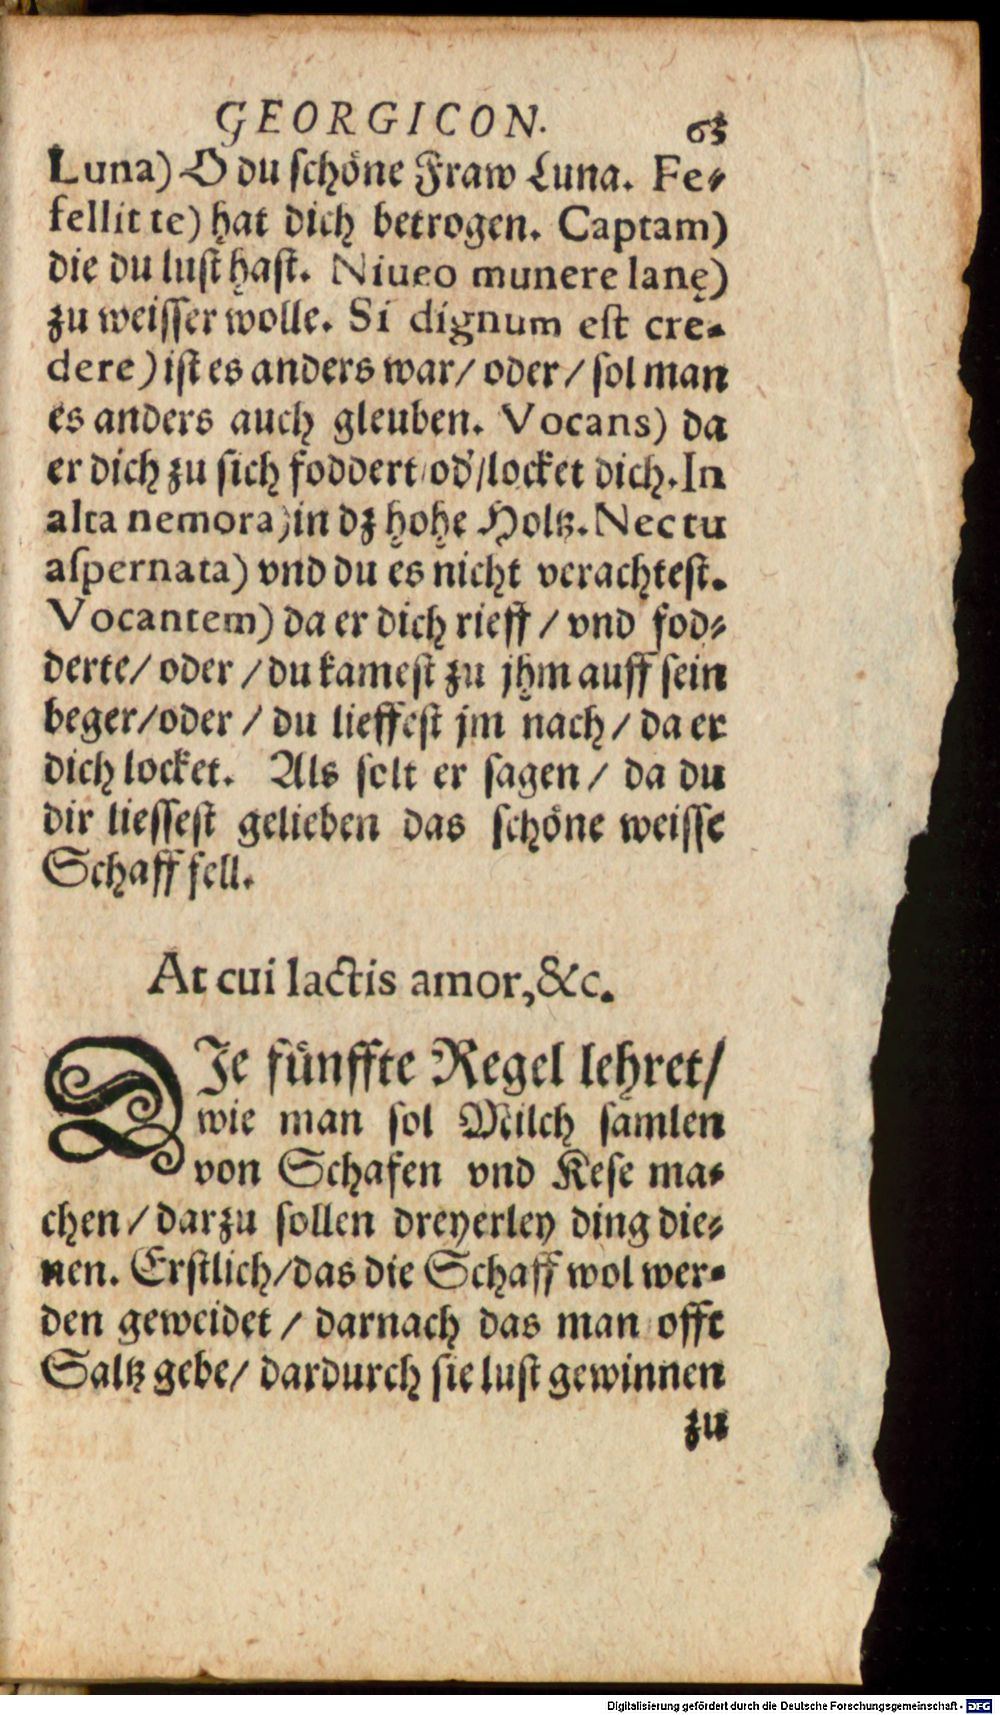 GEORGICON. 63
Luna) O du schöne Fraw Luna. Fe-
fellit te) hat dich betrogen. Captam)
die du lust hast. Niueo munere lanę)
zu weisser wolle. Si dignum est cre-
dere) ist es anders war/ oder/ sol man
es anders auch gleuben. Vocans) da
er dich zu sich foddert/od'/locket dich. In
alta nemora) in dz hohe Holtz. Nec tu
aspernata) vnd du es nicht verachtest.
Vocantem) da er dich rieff / vnd fod-
derte/ oder / du kamest zu jhm auff sein
beger/oder / du lieffest jm nach/ da er
dich locket. Als solt er sagen/ da du
dir liessest gelieben das schöne weisse
Schaff fell.
At cui lactis amor, &c.
DIe fünffte Regel lehret/
wie man sol Milch samlen
von Schafen vnd Kese ma-
chen/ darzu sollen dreyerley ding die-
nen. Erstlich/das die Schaff wol wer-
den geweidet / darnach das man offt
Saltz gebe/ dardurch sie lust gewinnen
zu
Digitalisierung gefördert durch die Deutsche Forschungsgemeinschaft - DFG